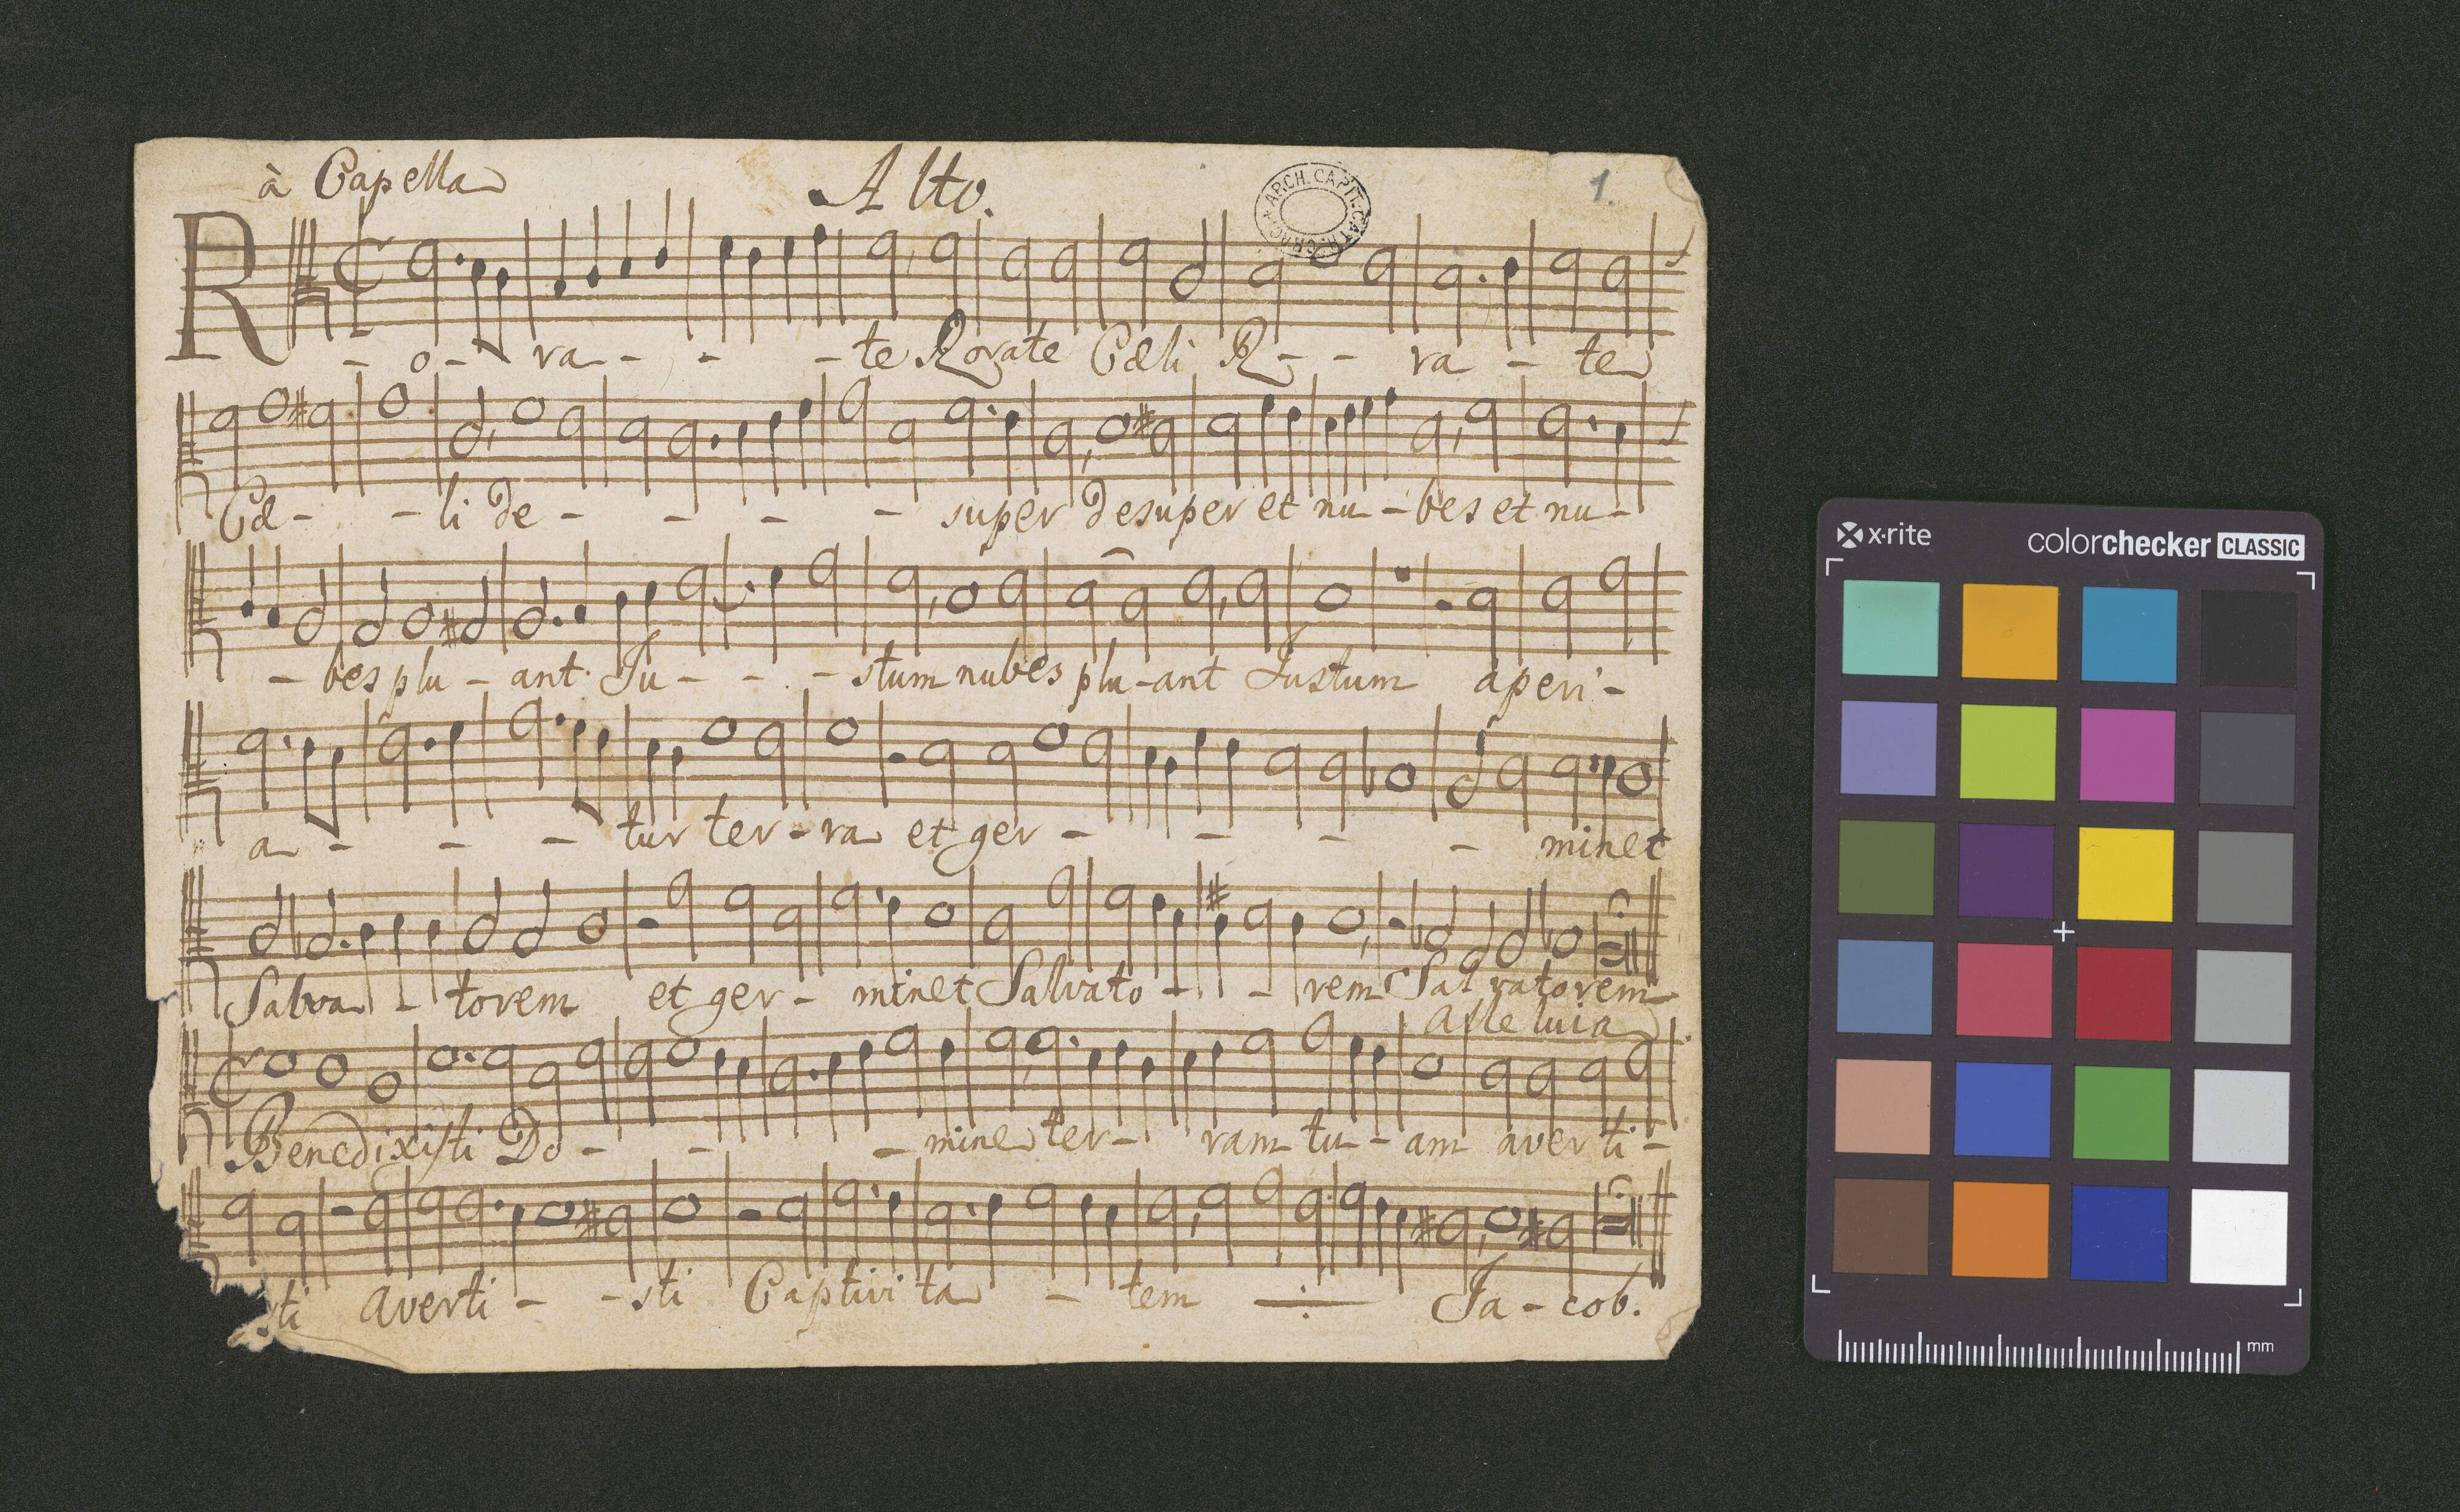 à Capella Alto. 1.
ARCH. CAPIT. CATH. CRAC.
R - o - ra - - - te Rorate Cæli R - - ra - te
Cæ - - li de - - - - super desuper et nu - bes et nu -
- bes plu - ant Ju - - - stum nubes plu - ant Justum aperi -
a - - - tur ter - ra et ger - - - - minet
Salva - torem et ger - minet Salvato - - rem Salvatorem
Alleluia
Benedixisti Do - - - mine ter - ram tu - am averti -
sti averti - - sti Captivita - tem Ja - cob.
x·rite colorchecker CLASSIC
mm